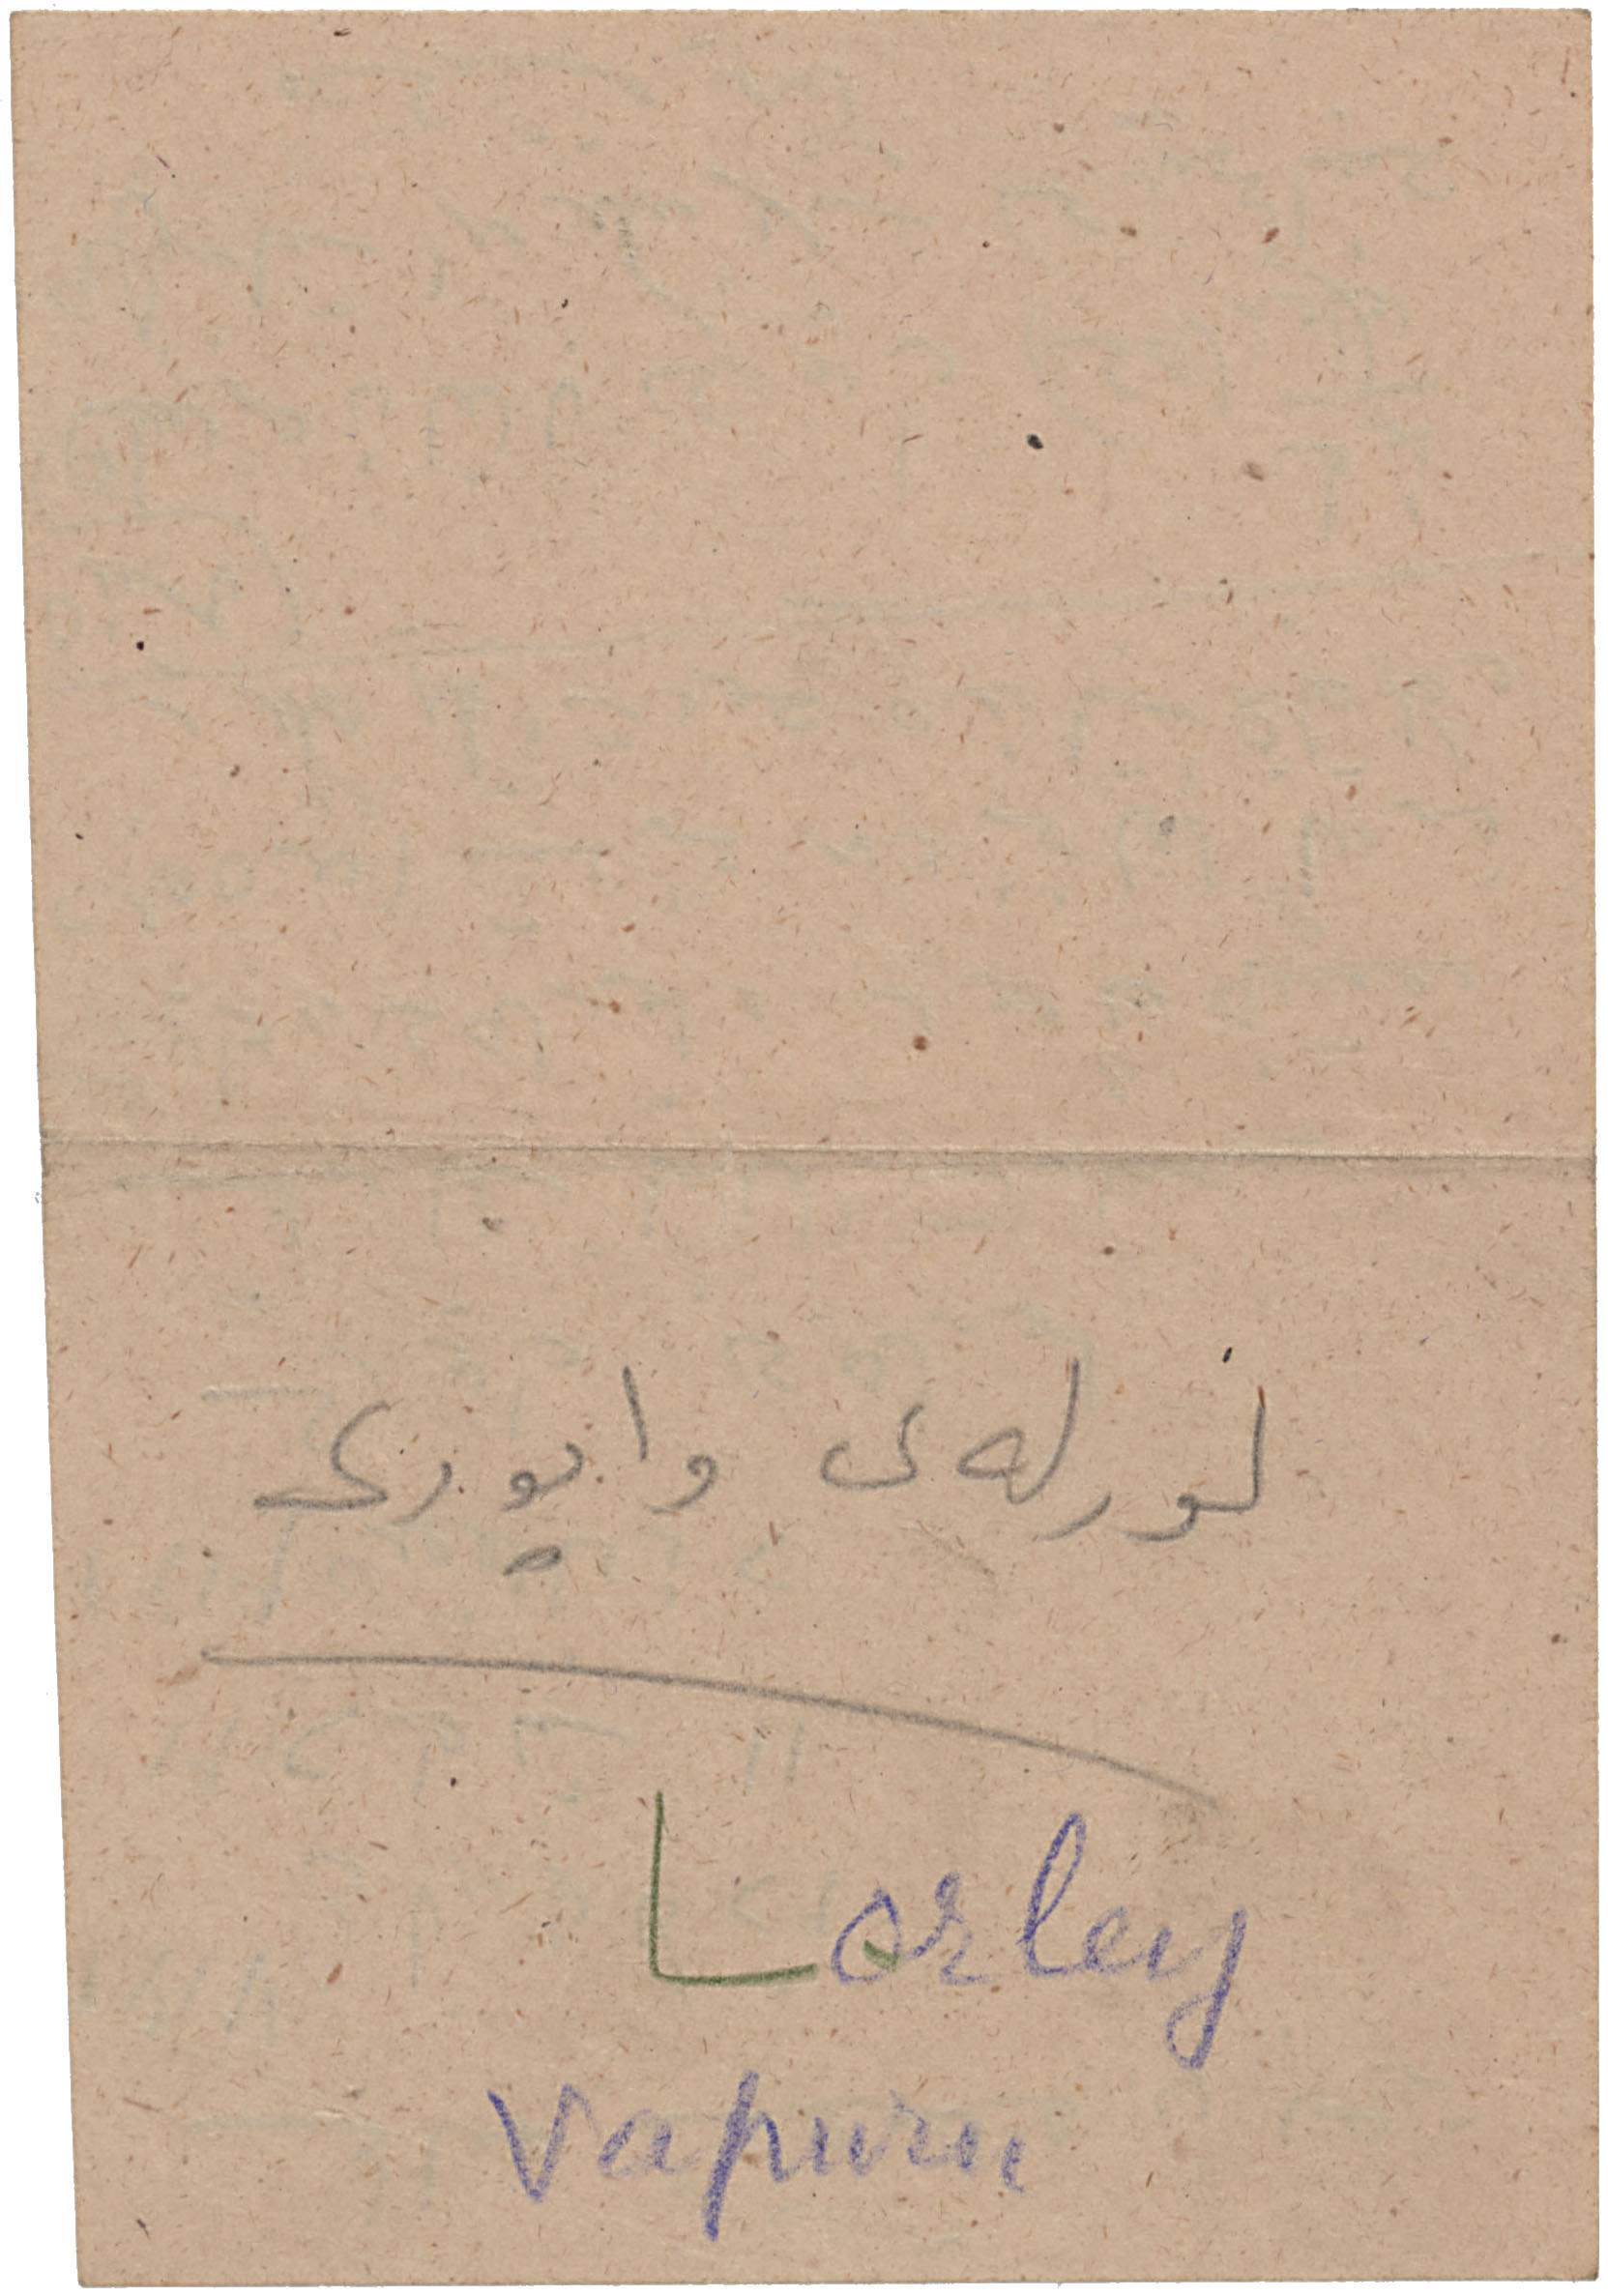 لورله‌ی واپوری
Lorley
Vapuru